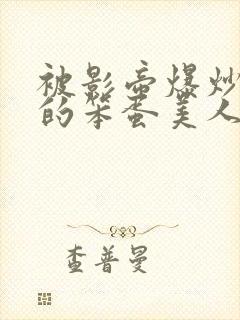 被影帝爆炒
的笨蛋美人
查普曼